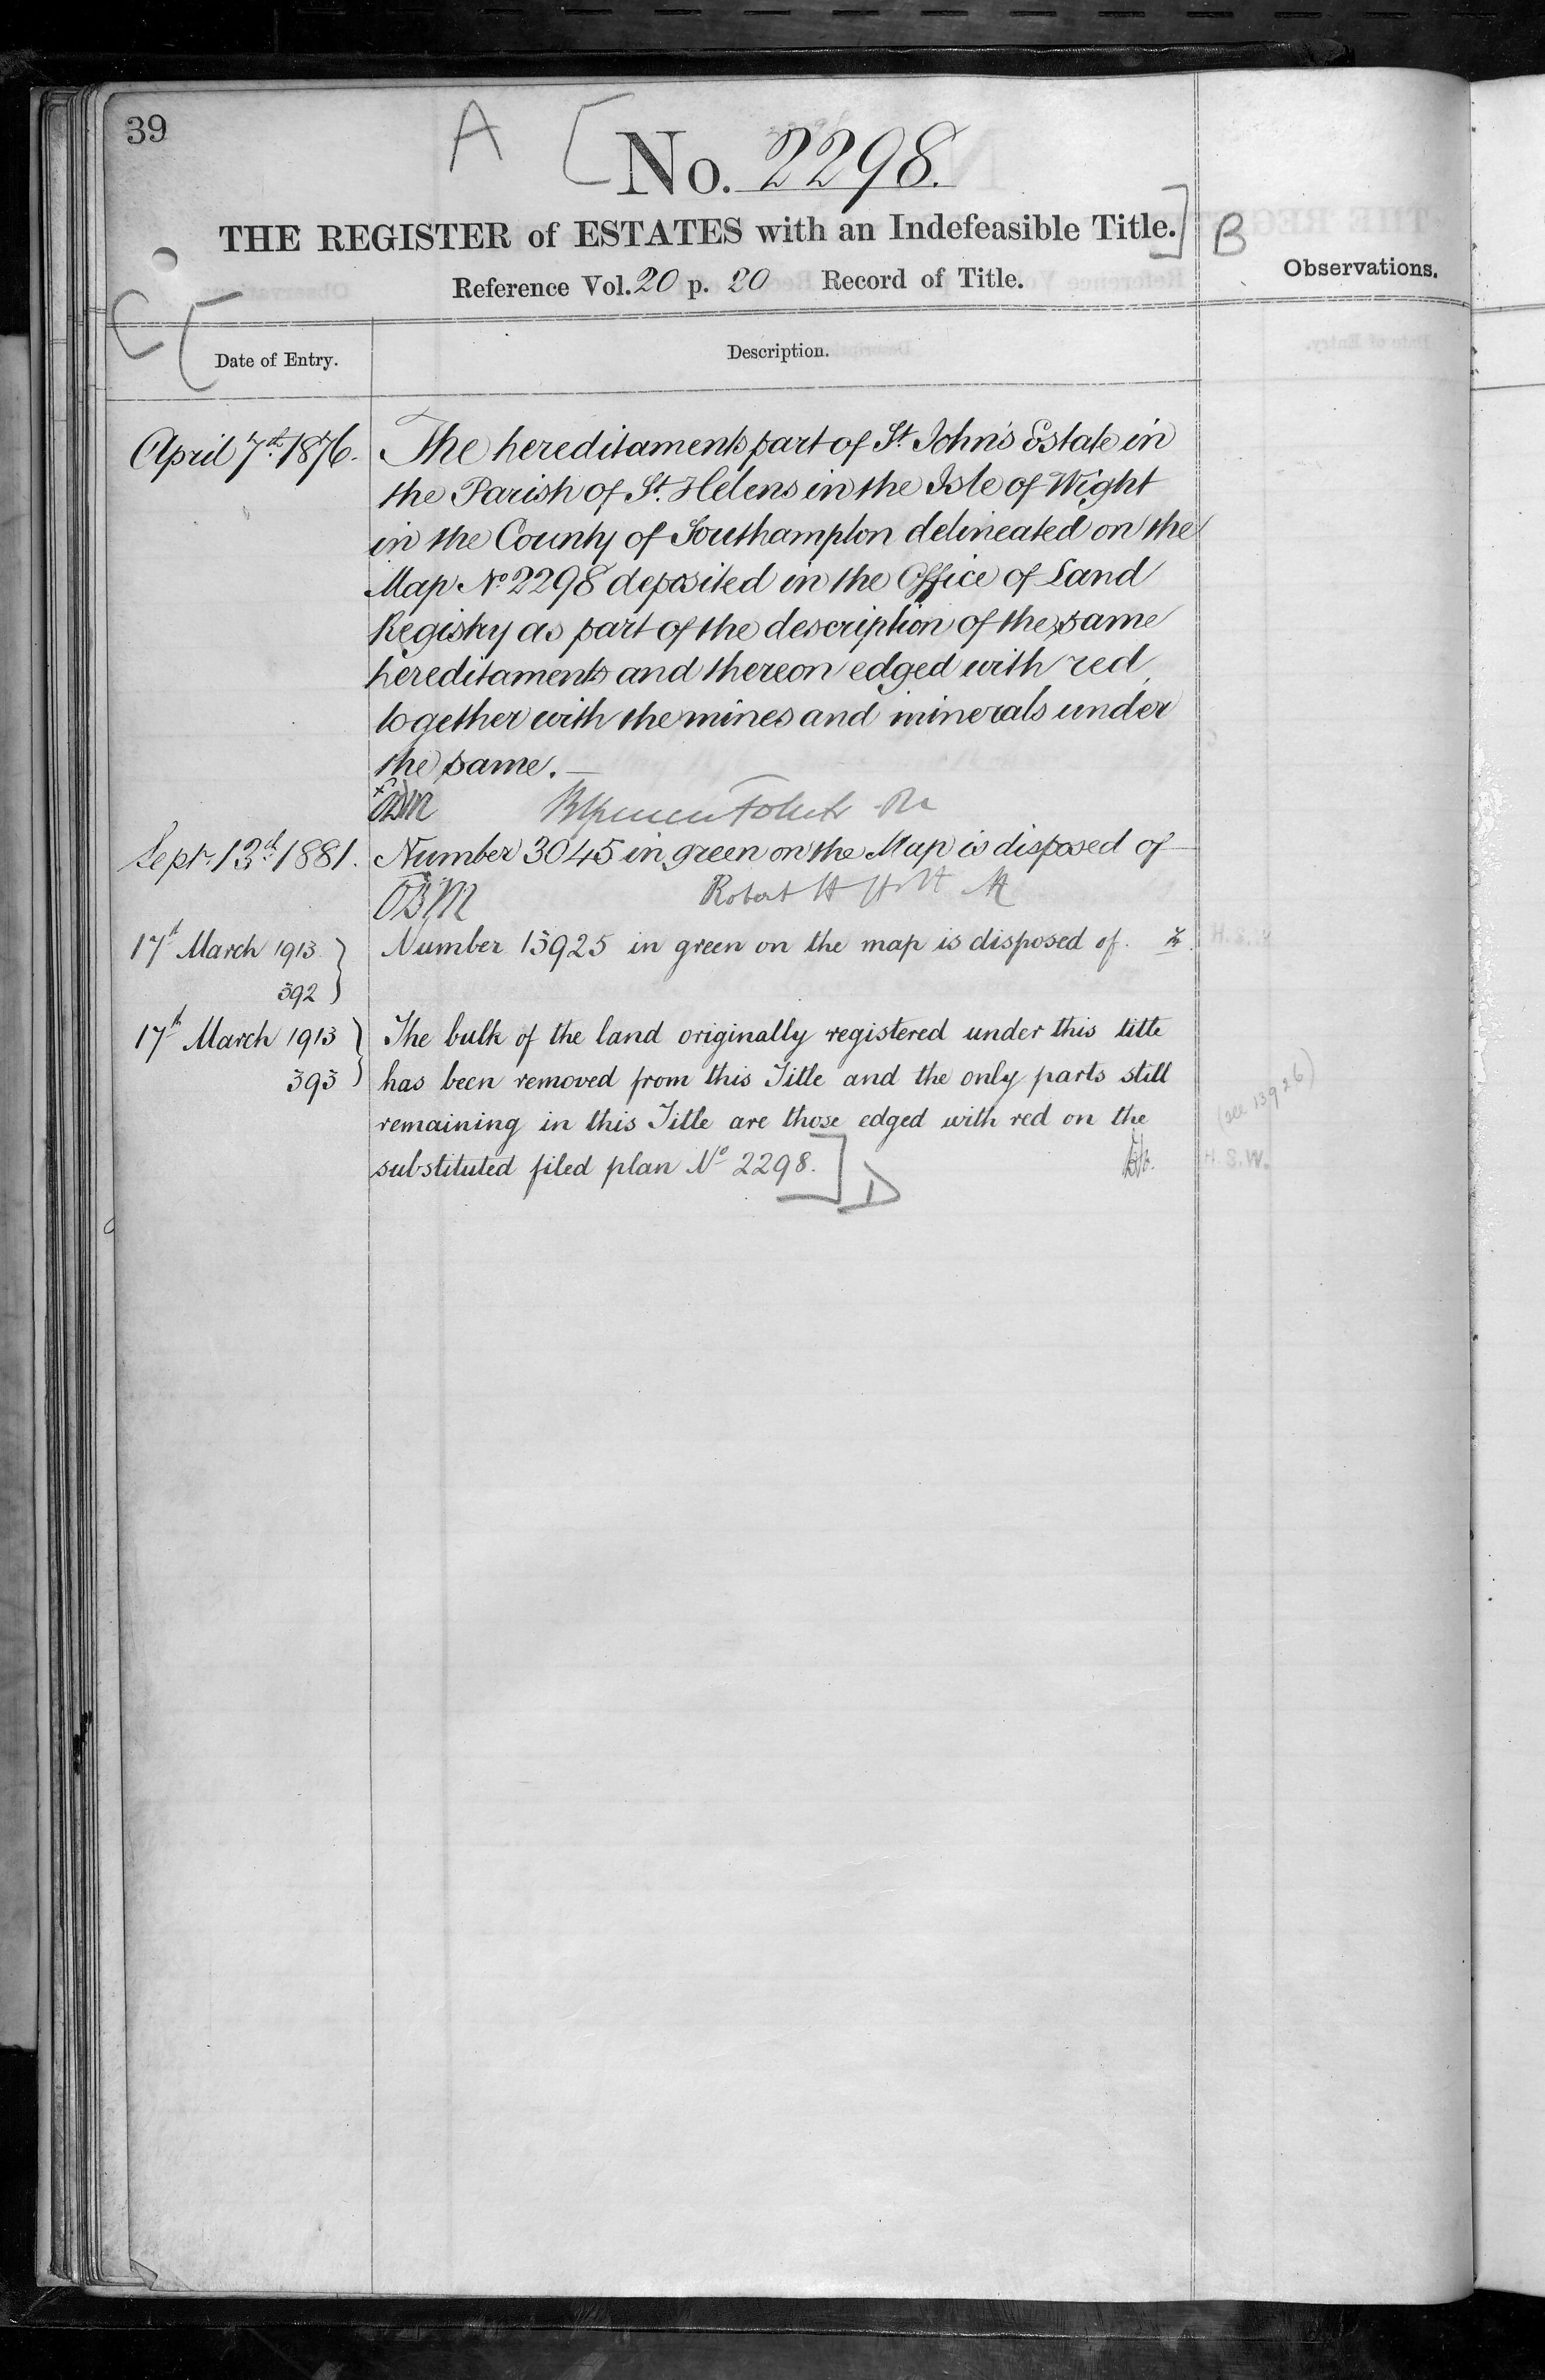 39
A [
No. 2298.
THE REGISTER of ESTATES with an Indefeasible Title.] B
Reference Vol. 20 p. 20 Record of Title.
Observations.
C [
Date of Entry.
Description.
April 7th 1876.
The hereditaments part of St. John's Estate in
the Parish of St. Helens in the Isle of Wight
in the County of Southampton delineated on the
Map No 2298 deposited in the Office of Land
Registry as part of the description of the same
hereditaments and thereon edged with red
together with the mines and minerals under
the same.
Sept. 13th 1881.
Number 3045 in green on the Map is disposed of
Robert H Holt
17th March 1913
392
Number 13925 in green on the map is disposed of.
17th March 1913
393
The bulk of the land originally registered under this title
has been removed from this Title and the only parts still
remaining in this Title are those edged with red on the
substituted filed plan No 2298.] D
(see 13926)
H.S.W.